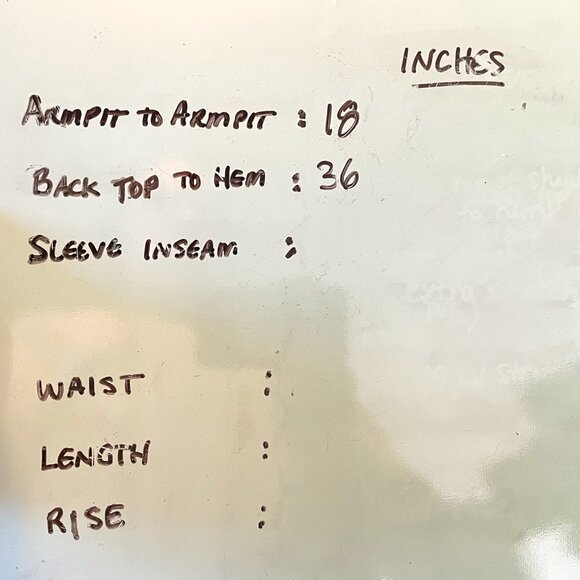 INCHES
ARMPIT TO ARMPIT : 18
BACK TOP TO HEM : 36
SLEEVE INSEAM :
WAIST :
LENGTH :
RISE :